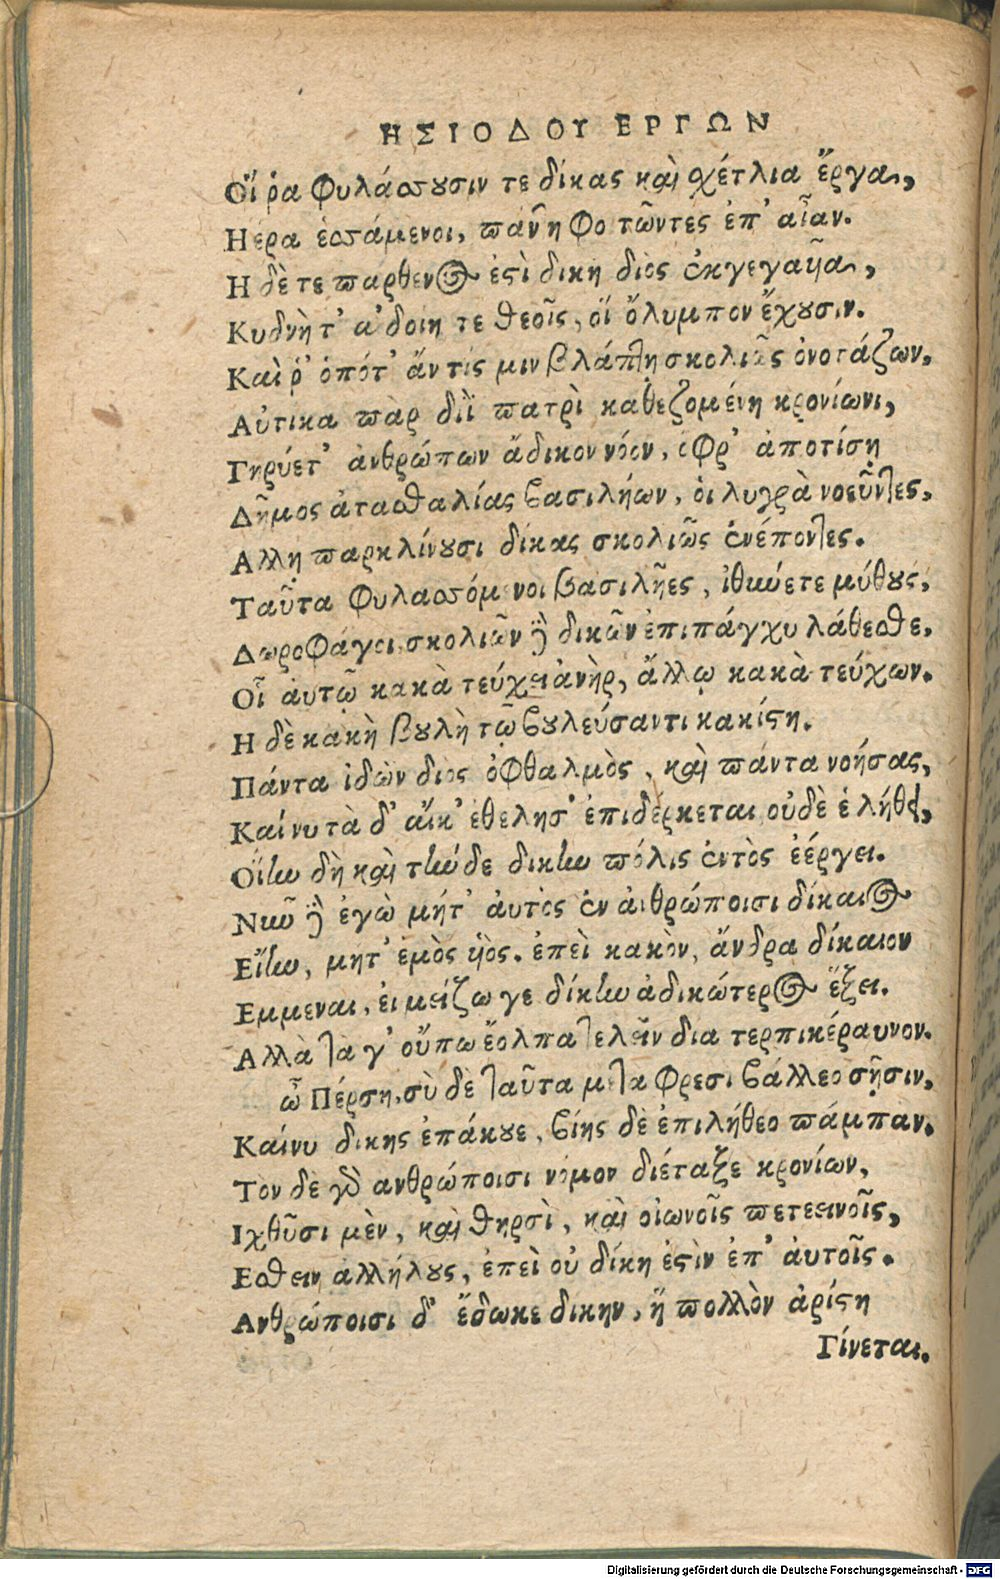 ΗΣΙΟΔΟΥ ΕΡΓΩΝ
Οἵ ῥα φυλάσσουσιν τε δίκας καὶ σχέτλια ἔργα,
Ηέρα ἑσσάμενοι, πάντη φοιτῶντες ἐπ' αἶαν.
Η δὲ τε παρθενος ἐστὶ δικη διὸς ἐκγεγαυῖα,
Κυδνὴ τ' αἰδοιη τε θεοῖς, οἵ ὄλυμπον ἔχουσιν.
Καὶ ῥ' ὁπότ' ἄν τίς μιν βλάπτῃ σκολιῶς ὀνοτάζων,
Αὐτικα πὰρ διῒ πατρὶ καθεζομένη κρονίωνι,
Γηρύετ' ἀνθρώπων ἄδικον νόον, ὀφρ' ἀποτίσῃ
Δῆμος ἀτασθαλίας βασιλήων, οἱ λυγρὰ νοεῦντες,
Αλλῃ παρκλίνουσι δίκας σκολιῶς ἐνέποντες.
Ταῦτα φυλασσόμενοι βασιλῆες, ἰθύετε μύθους,
Δωροφάγοι, σκολιῶν δὲ δικῶν ἐπιπάγχυ λάθεσθε.
Οἷ ἀυτῷ κακὰ τεύχει ἀνὴρ, ἄλλῳ κακὰ τεύχων.
Η δὲ κακὴ βουλὴ τῷ βουλεύσαντι κακίστη.
Πάντα ἰδὼν διὸς ὀφθαλμὸς, καὶ πάντα νοήσας,
Καί νυ τὰ δ' αἴκ' ἐθελησ' ἐπιδέρκεται, οὐδὲ ἑ λήθει,
Οἵην δὴ καὶ τήνδε δικην πόλις ἐντὸς ἐέργει.
Νῦν δὲ ἐγὼ μήτ' ἀυτὸς ἐν ἀνθρώποισι δίκαιος
Εἴην, μητ' ἐμὸς υἱός. ἐπεὶ κακὸν, ἄνδρα δίκαιον
Εμμεναι, ἐι μείζω γε δίκην ἀδικώτερος ἕξει.
Αλλὰ τὰ γ' οὔπω ἔολπα τελεῖν δια τερπικέραυνον.
ὦ Πέρση, σὺ δὲ ταῦτα μετὰ φρεσι βάλλεο σῇσιν,
Καίνυ δικης ἐπάκουε, βίης δὲ ἐπιλήθεο πάμπαν.
Τὸν δε γὰρ ανθρώποισι νόμον διέταξε κρονίων,
Ιχθῦσι μὲν, καὶ θηρσὶ, καὶ οἰωνοῖς πετεεινοῖς,
Εσθειν αλλήλους, ἐπεὶ οὐ δίκη ἐστὶν ἐπ' ἀυτοῖς.
Ανθρώποισι δ' ἔδωκε δικην, ἥ πολλὸν ἀρίστη
Γίνεται.
Digitalisierung gefördert durch die Deutsche Forschungsgemeinschaft - DFG